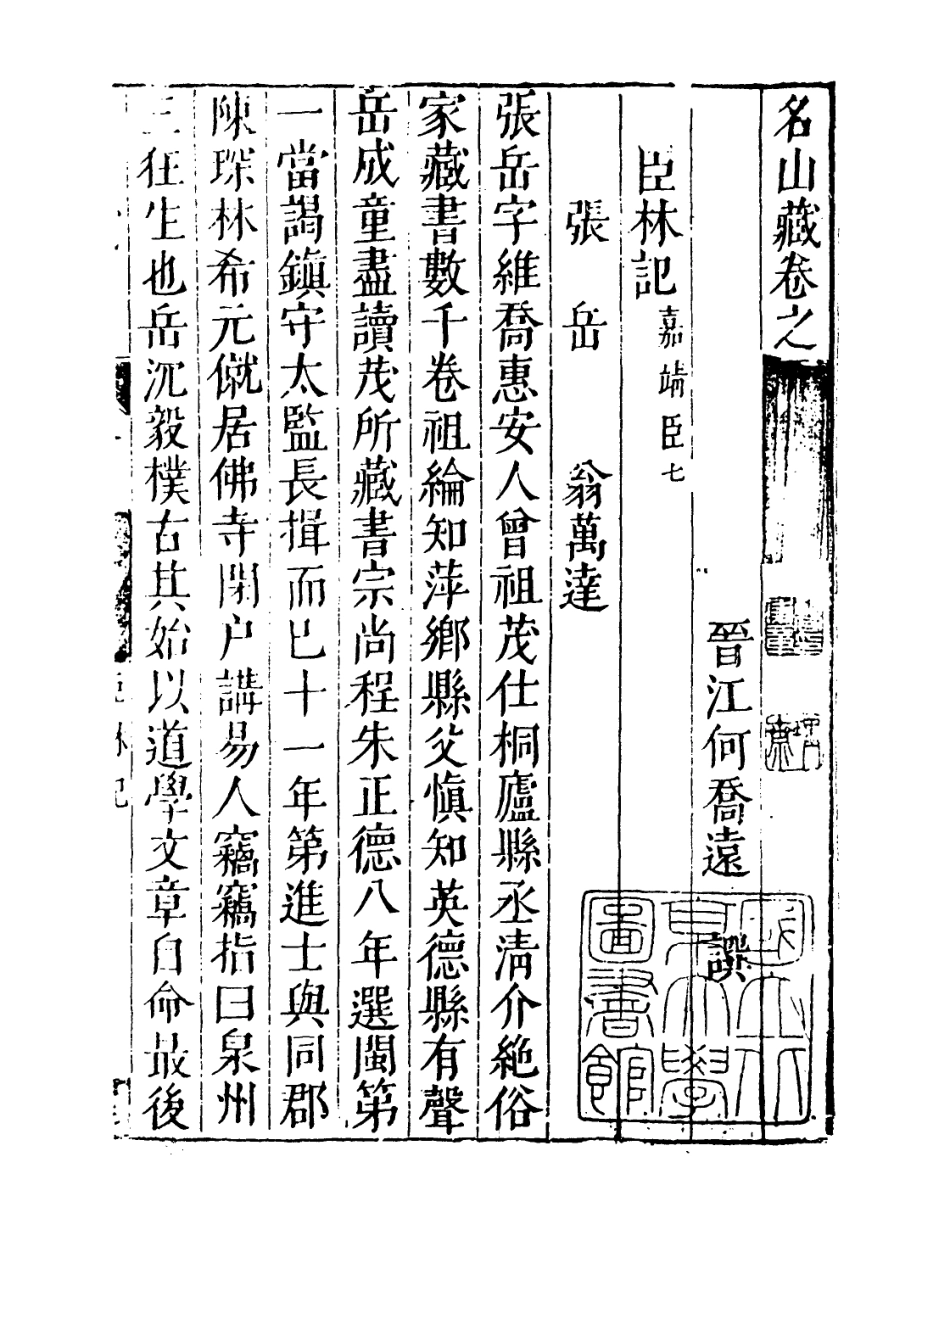 名山藏卷之
晉江何喬遠譔
臣林記嘉靖臣七
張岳 翁萬達
張岳字維喬惠安人曾祖茂仕桐廬縣丞淸介絶俗
家藏書數千卷祖綸知萍鄉縣父愼知英德縣有聲
岳成童盡讀茂所藏書宗尚程朱正德八年選閩第
一當謁鎮守太監長揖而已十一年第進士與同郡
陳琛林希元僦居佛寺閉户講易人竊竊指曰泉州
三狂生也岳沉毅樸古其始以道學文章自命最後
臣林記
國立北平大學圖書館